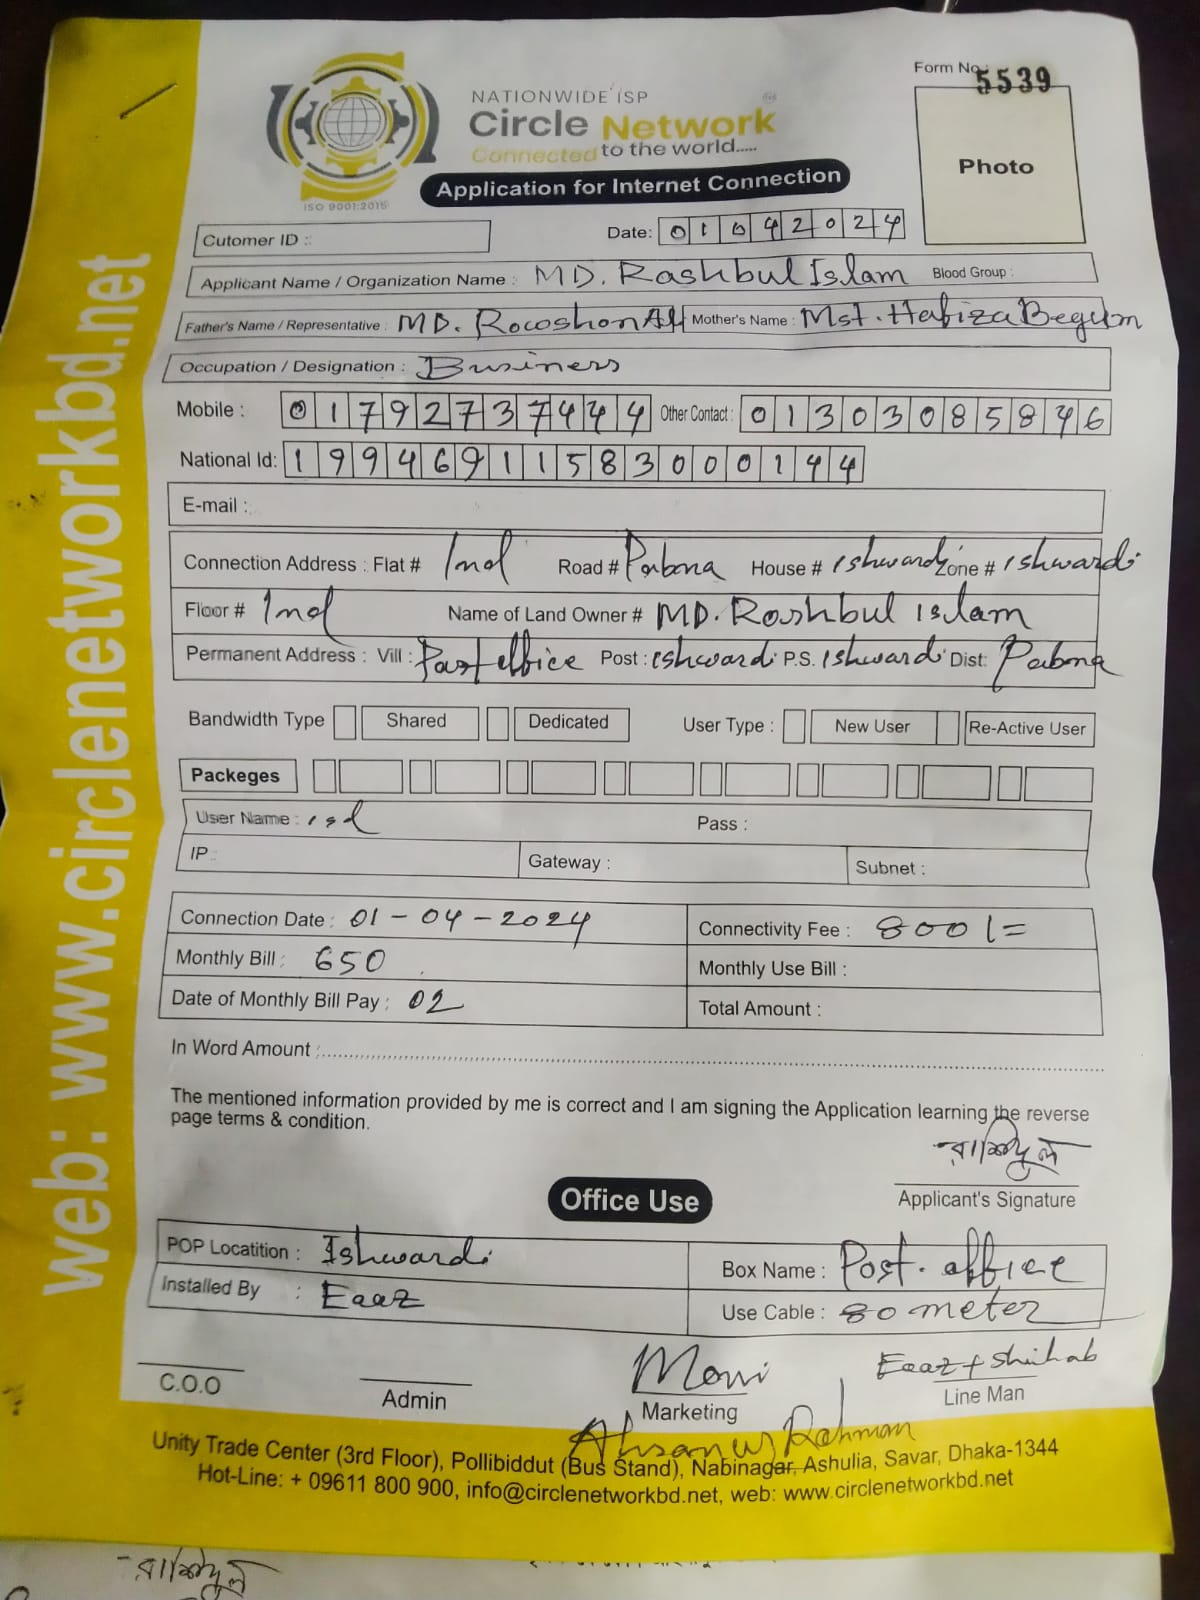 Form No.: 5539
NATIONWIDE ISP
Circle Network
Connected to the world.....
ISO 9001:2015
Application for Internet Connection
Photo
Cutomer ID :
Date: 01042024
Applicant Name / Organization Name : MD. Rashbul Islam Blood Group :
Father's Name / Representative : MD. Rowshon Ali Mother's Name : Mst. Hafiza Begum
Occupation / Designation : Business
Mobile : 01792737444 Other Contact : 01303085846
National Id: 19946911583000144
E-mail :
Connection Address : Flat # Ind Road # Pabna House # Ishwardi Zone # Ishwardi
Floor # Ind Name of Land Owner # MD. Rashbul islam
Permanent Address : Vill : Post office Post : eshwardi P.S. Ishwardi Dist: Pabna
Bandwidth Type Shared Dedicated User Type : New User Re-Active User
Packeges
User Name : isd Pass :
IP : Gateway : Subnet :
Connection Date : 01-04-2024 Connectivity Fee : 800/=
Monthly Bill : 650 Monthly Use Bill :
Date of Monthly Bill Pay : 02 Total Amount :
In Word Amount :
The mentioned information provided by me is correct and I am signing the Application learning the reverse
page terms & condition.
রাশিদুল
Applicant's Signature
Office Use
POP Locatition : Ishwardi Box Name : Post. office
Installed By : Eaaz Use Cable : 80 meter
Moni Eaaz + Shihab
C.O.O Admin Marketing Line Man
Rahman
Unity Trade Center (3rd Floor), Pollibiddut (Bus Stand), Nabinagar, Ashulia, Savar, Dhaka-1344
Hot-Line: + 09611 800 900, info@circlenetworkbd.net, web: www.circlenetworkbd.net
web: www.circlenetworkbd.net
রাশিদুল